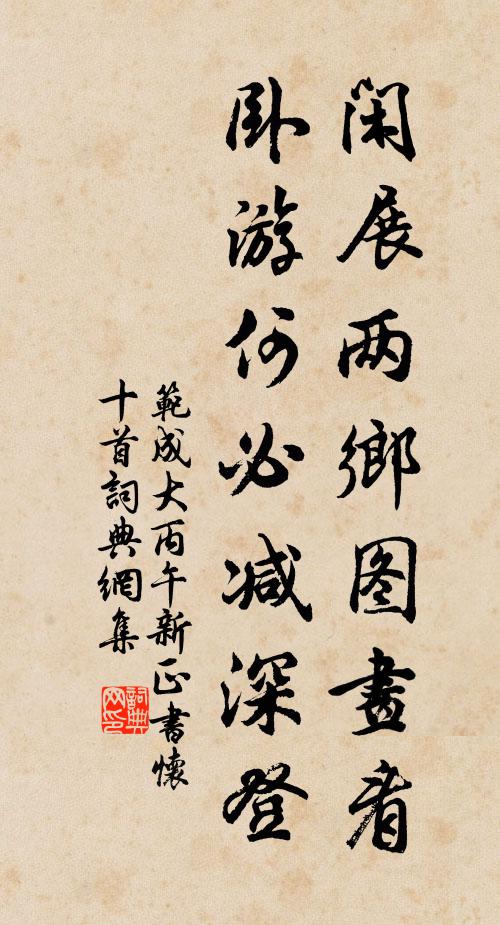 闲展两鄉图畫看
卧游何必减深登
範成大丙午新正書懷
十首詞典網集
詞典
网印